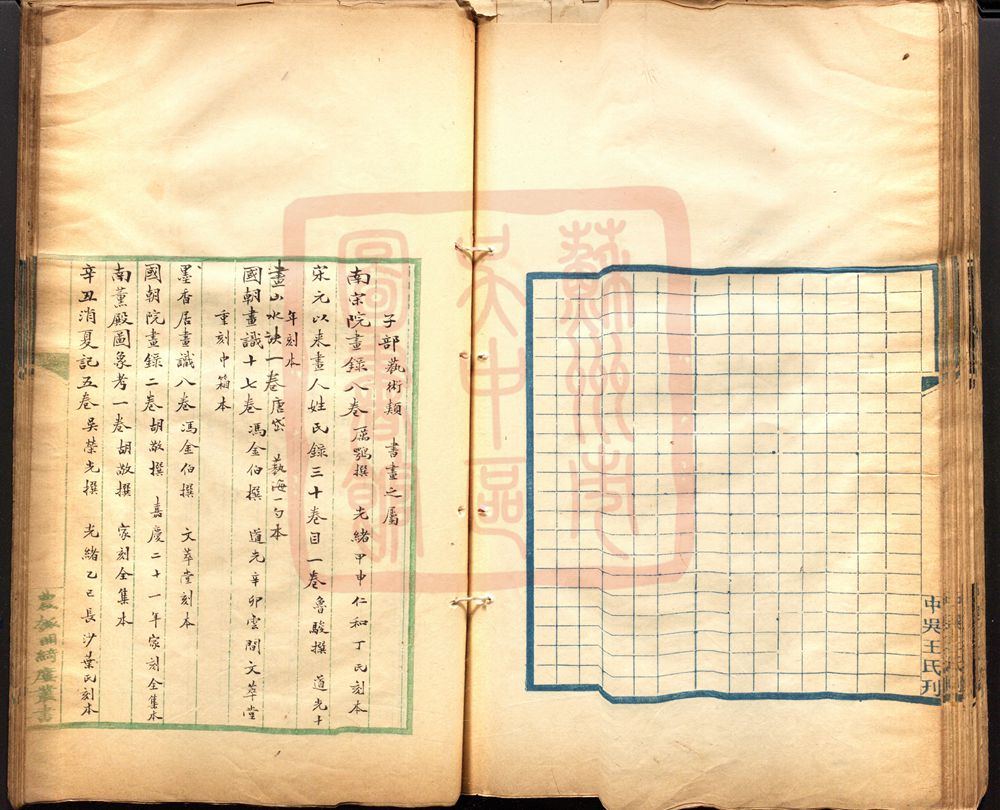 中吳王氏刊
子部藝術類　書畫之屬
南宗院畫錄八卷厲鶚撰　光緒甲申仁和丁氏刻本
宋元以來畫人姓氏錄三十卷目一卷魯駿撰　道光十
年刻本
畫山水訣一卷唐岱　藝海一勺本
國朝畫識十七卷馮金伯撰　道光辛卯雲間文萃堂
重刻巾箱本
墨香居畫識八卷馮金伯撰　文萃堂刻本
國朝院畫錄二卷胡敬撰　嘉慶二十一年家刻全集本
南薰殿圖象考一卷胡敬撰　家刻全集本
辛丑消夏記五卷吳榮光撰　光緒乙巳長沙葉氏刻本
叢書
蘇州市
吳中區
圖書館